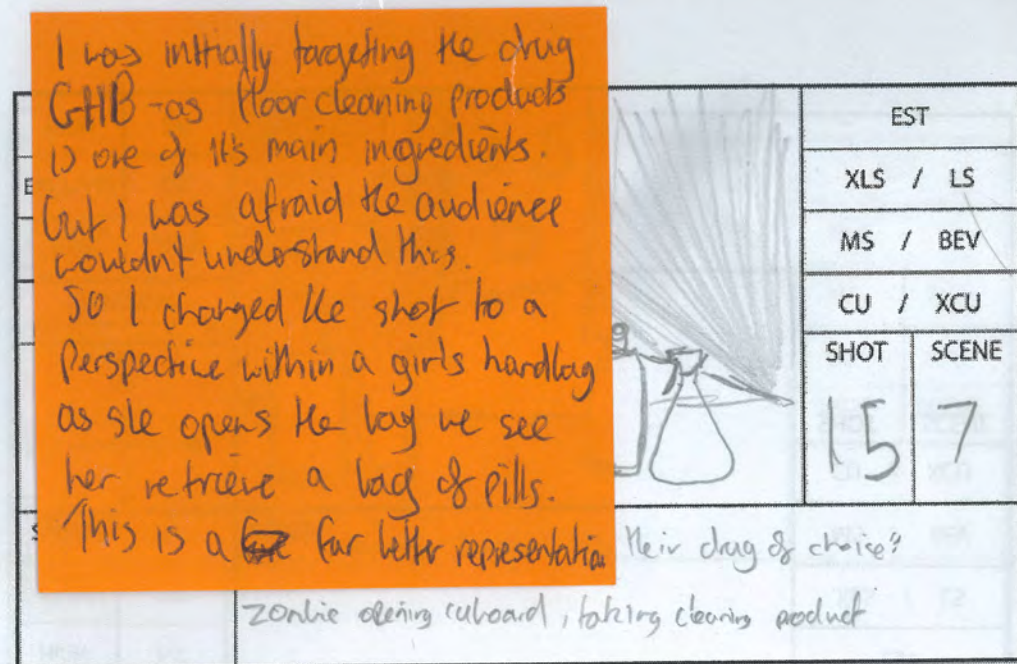 I was initially targeting the drug
GHB - as floor cleaning products
is one of it's main ingredients.
but I was afraid the audience
wouldn't understand this.
So I changed the shot to a
perspective within a girls handbag
as she opens the bag we see
her retrieve a bag of pills.
This is a far better representation
EST
XLS / LS
MS / BEV
CU / XCU
SHOT SCENE
15 7
their drug of choice"
zombie opening cuboard, taking cleaning product